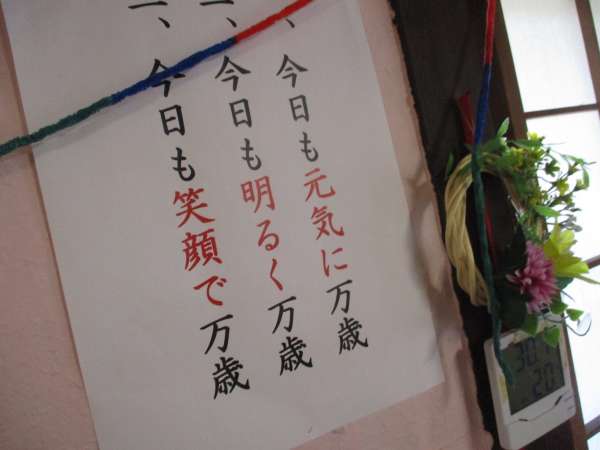 、今日も元気に万歳
一、今日も明るく万歳
一、今日も笑顔で万歳
20